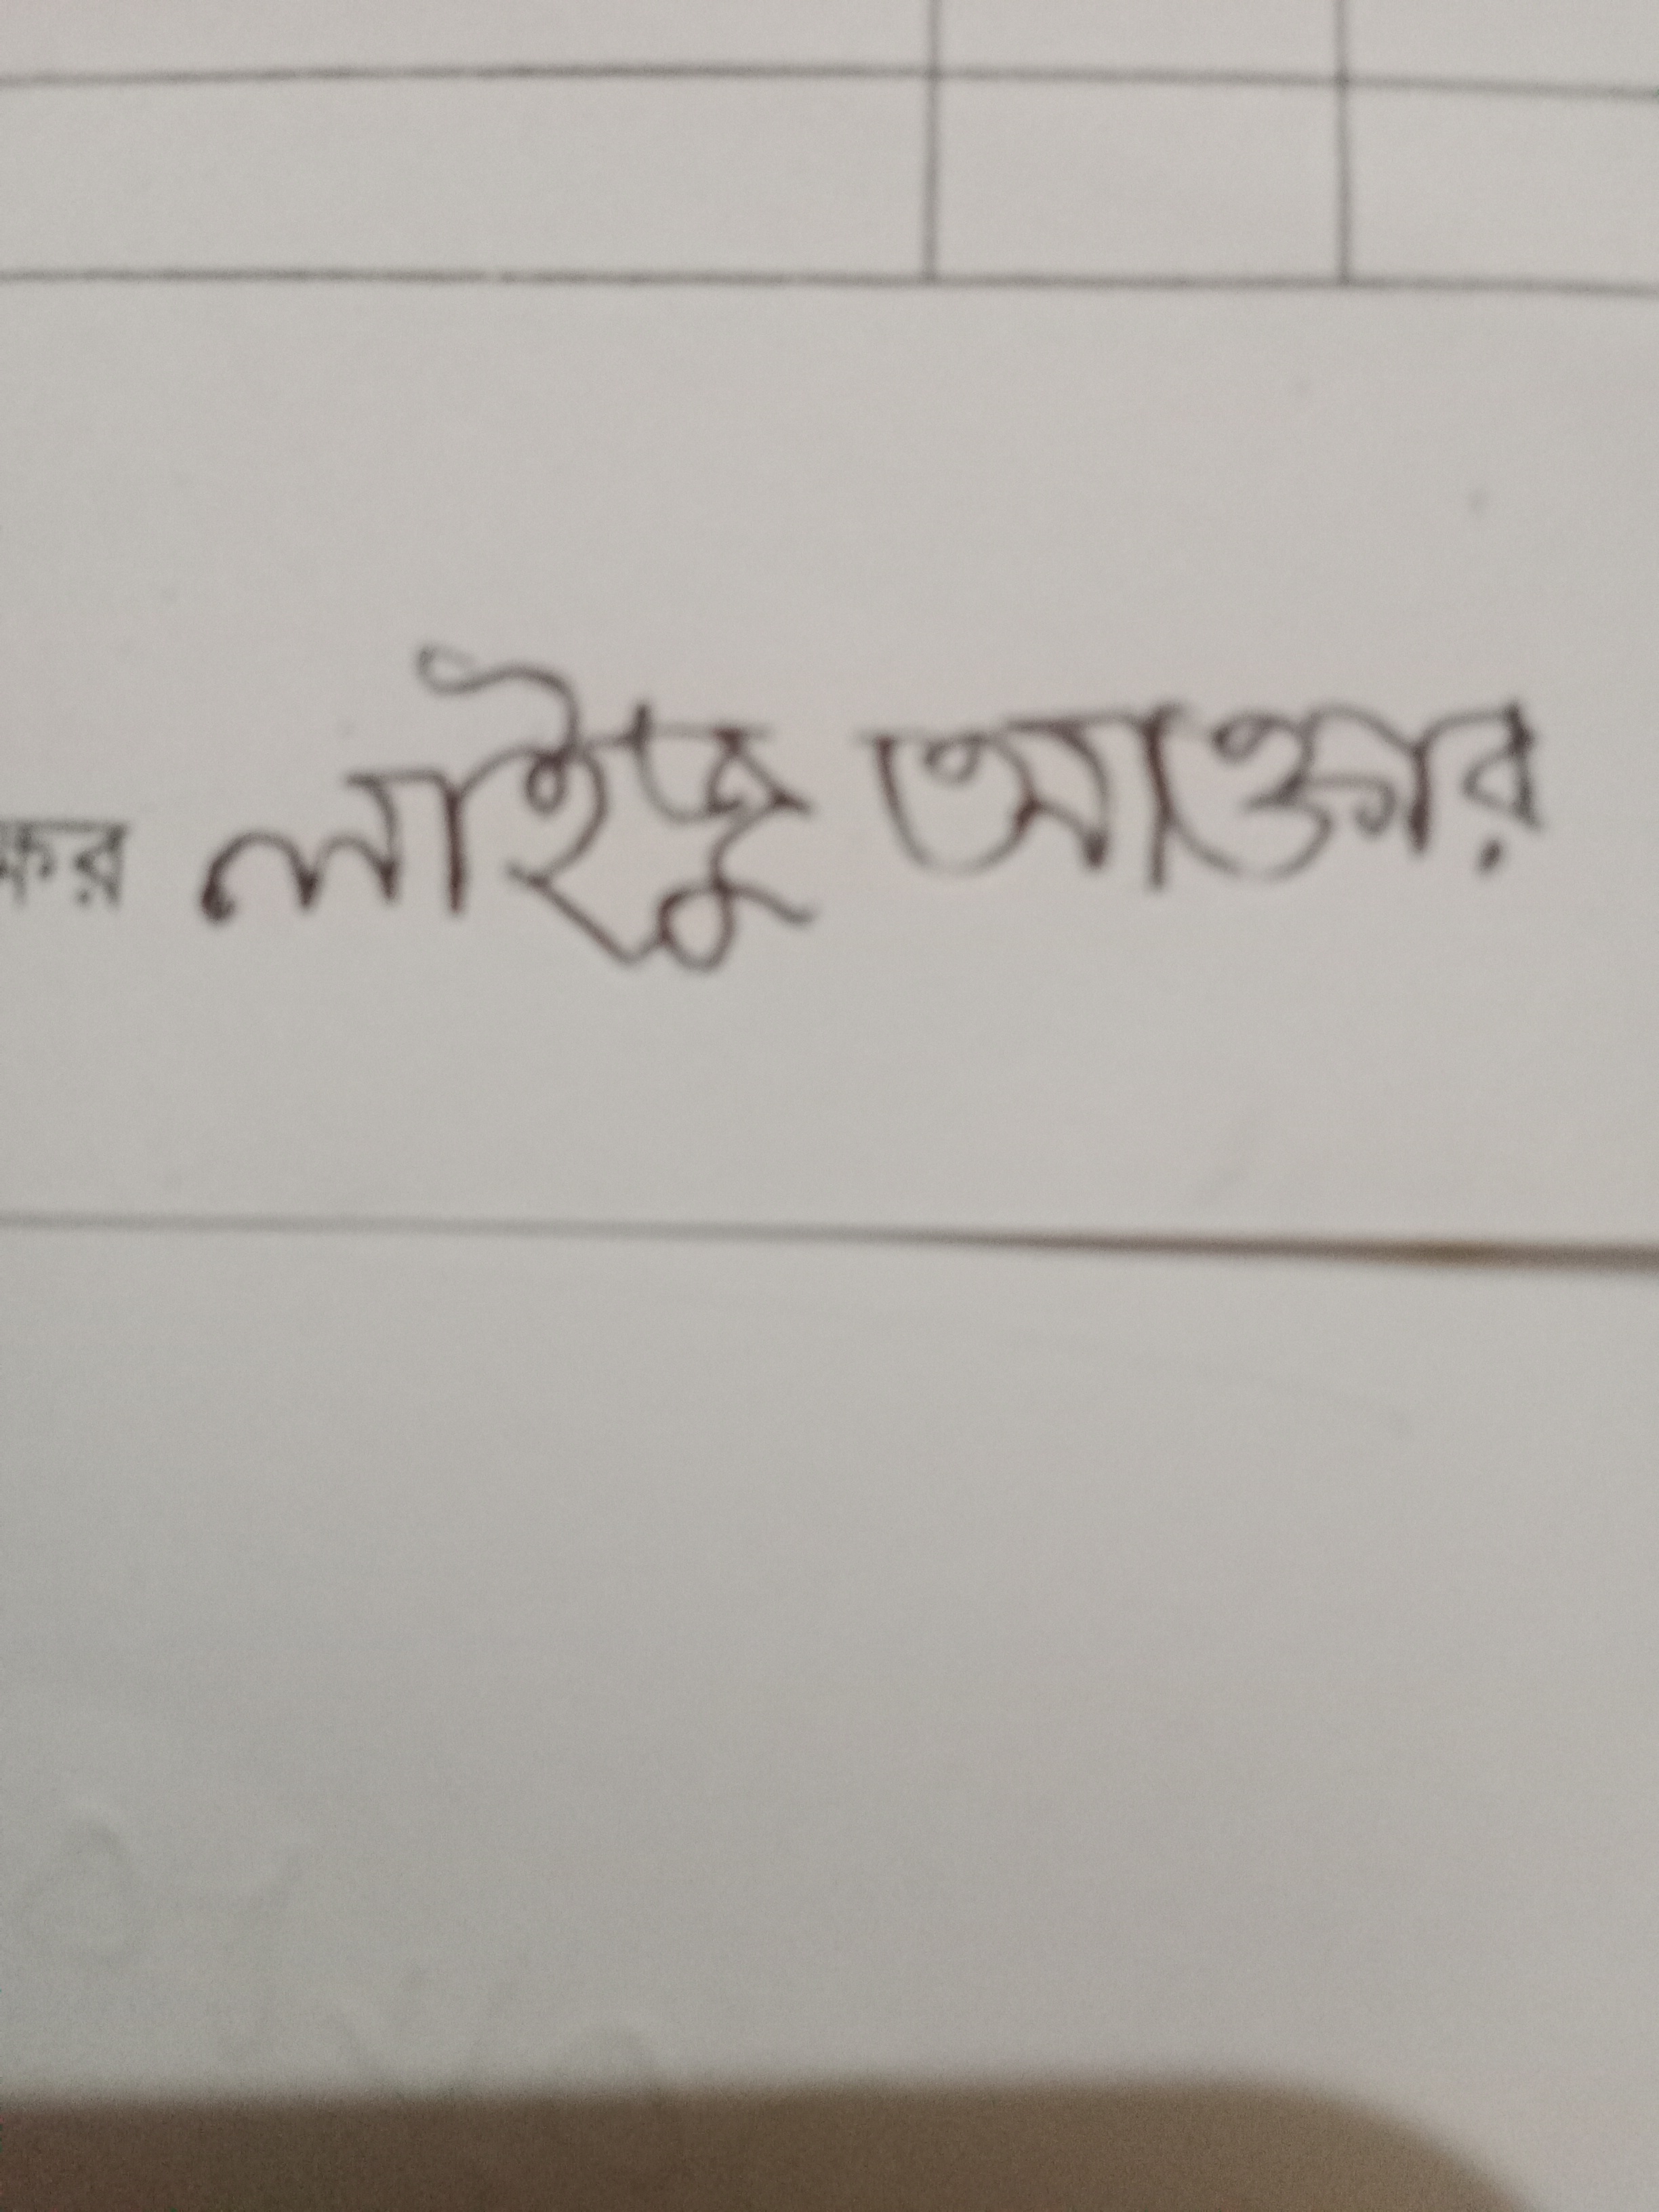 ক্ষর লাইজু আক্তার